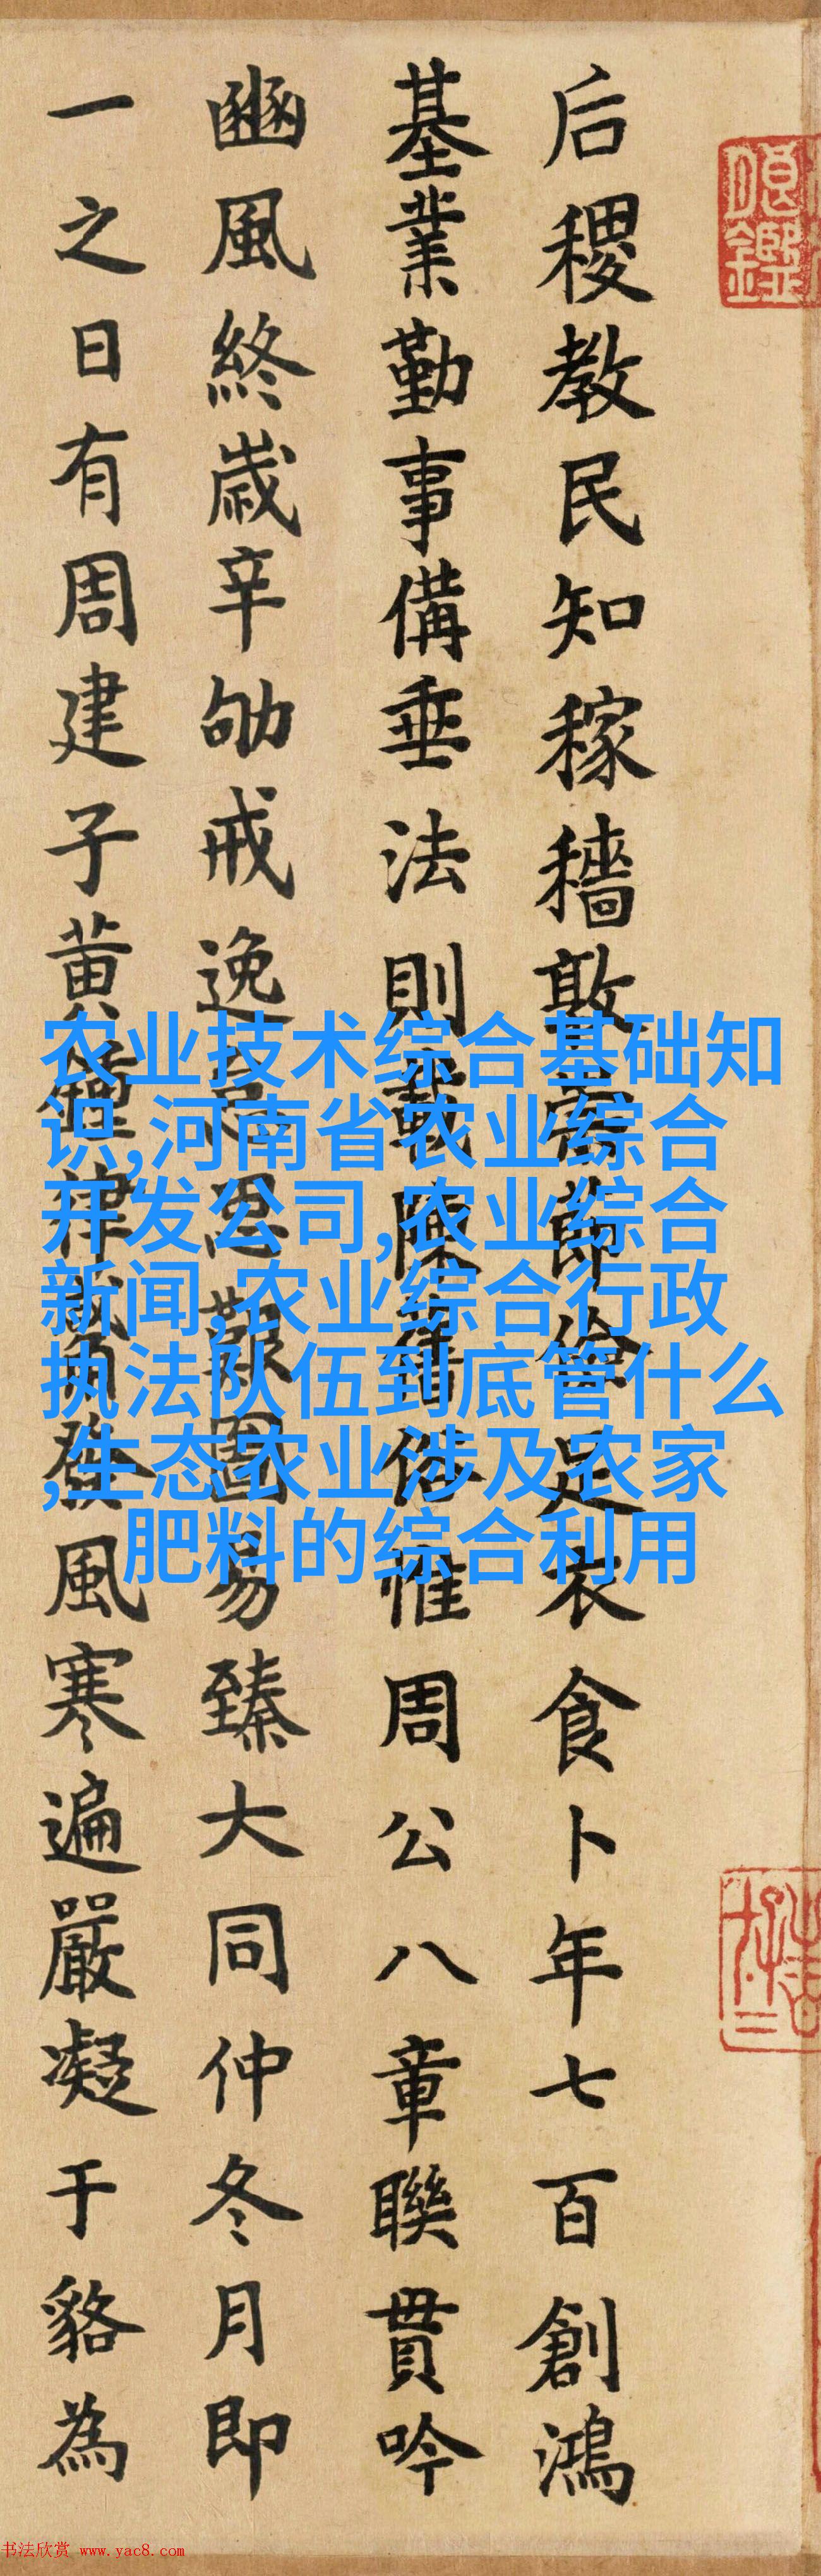 后稷教民知稼穡敦節儉足衣食卜年七百創鴻
基業勤事備垂法則載陳舊俗惟周公八章聯貫吟
豳風終歲辛劬戒逸思艱圖易臻大同仲冬月即
一之日有周建子黃鐘律觱發風寒遍嚴凝于貉為
农业技术综合基础知
识,河南省农业综合
开发公司,农业综合
新闻,农业综合行政
执法队伍到底管什么
,生态农业涉及农家
肥料的综合利用
书法欣赏 www.yac8.com